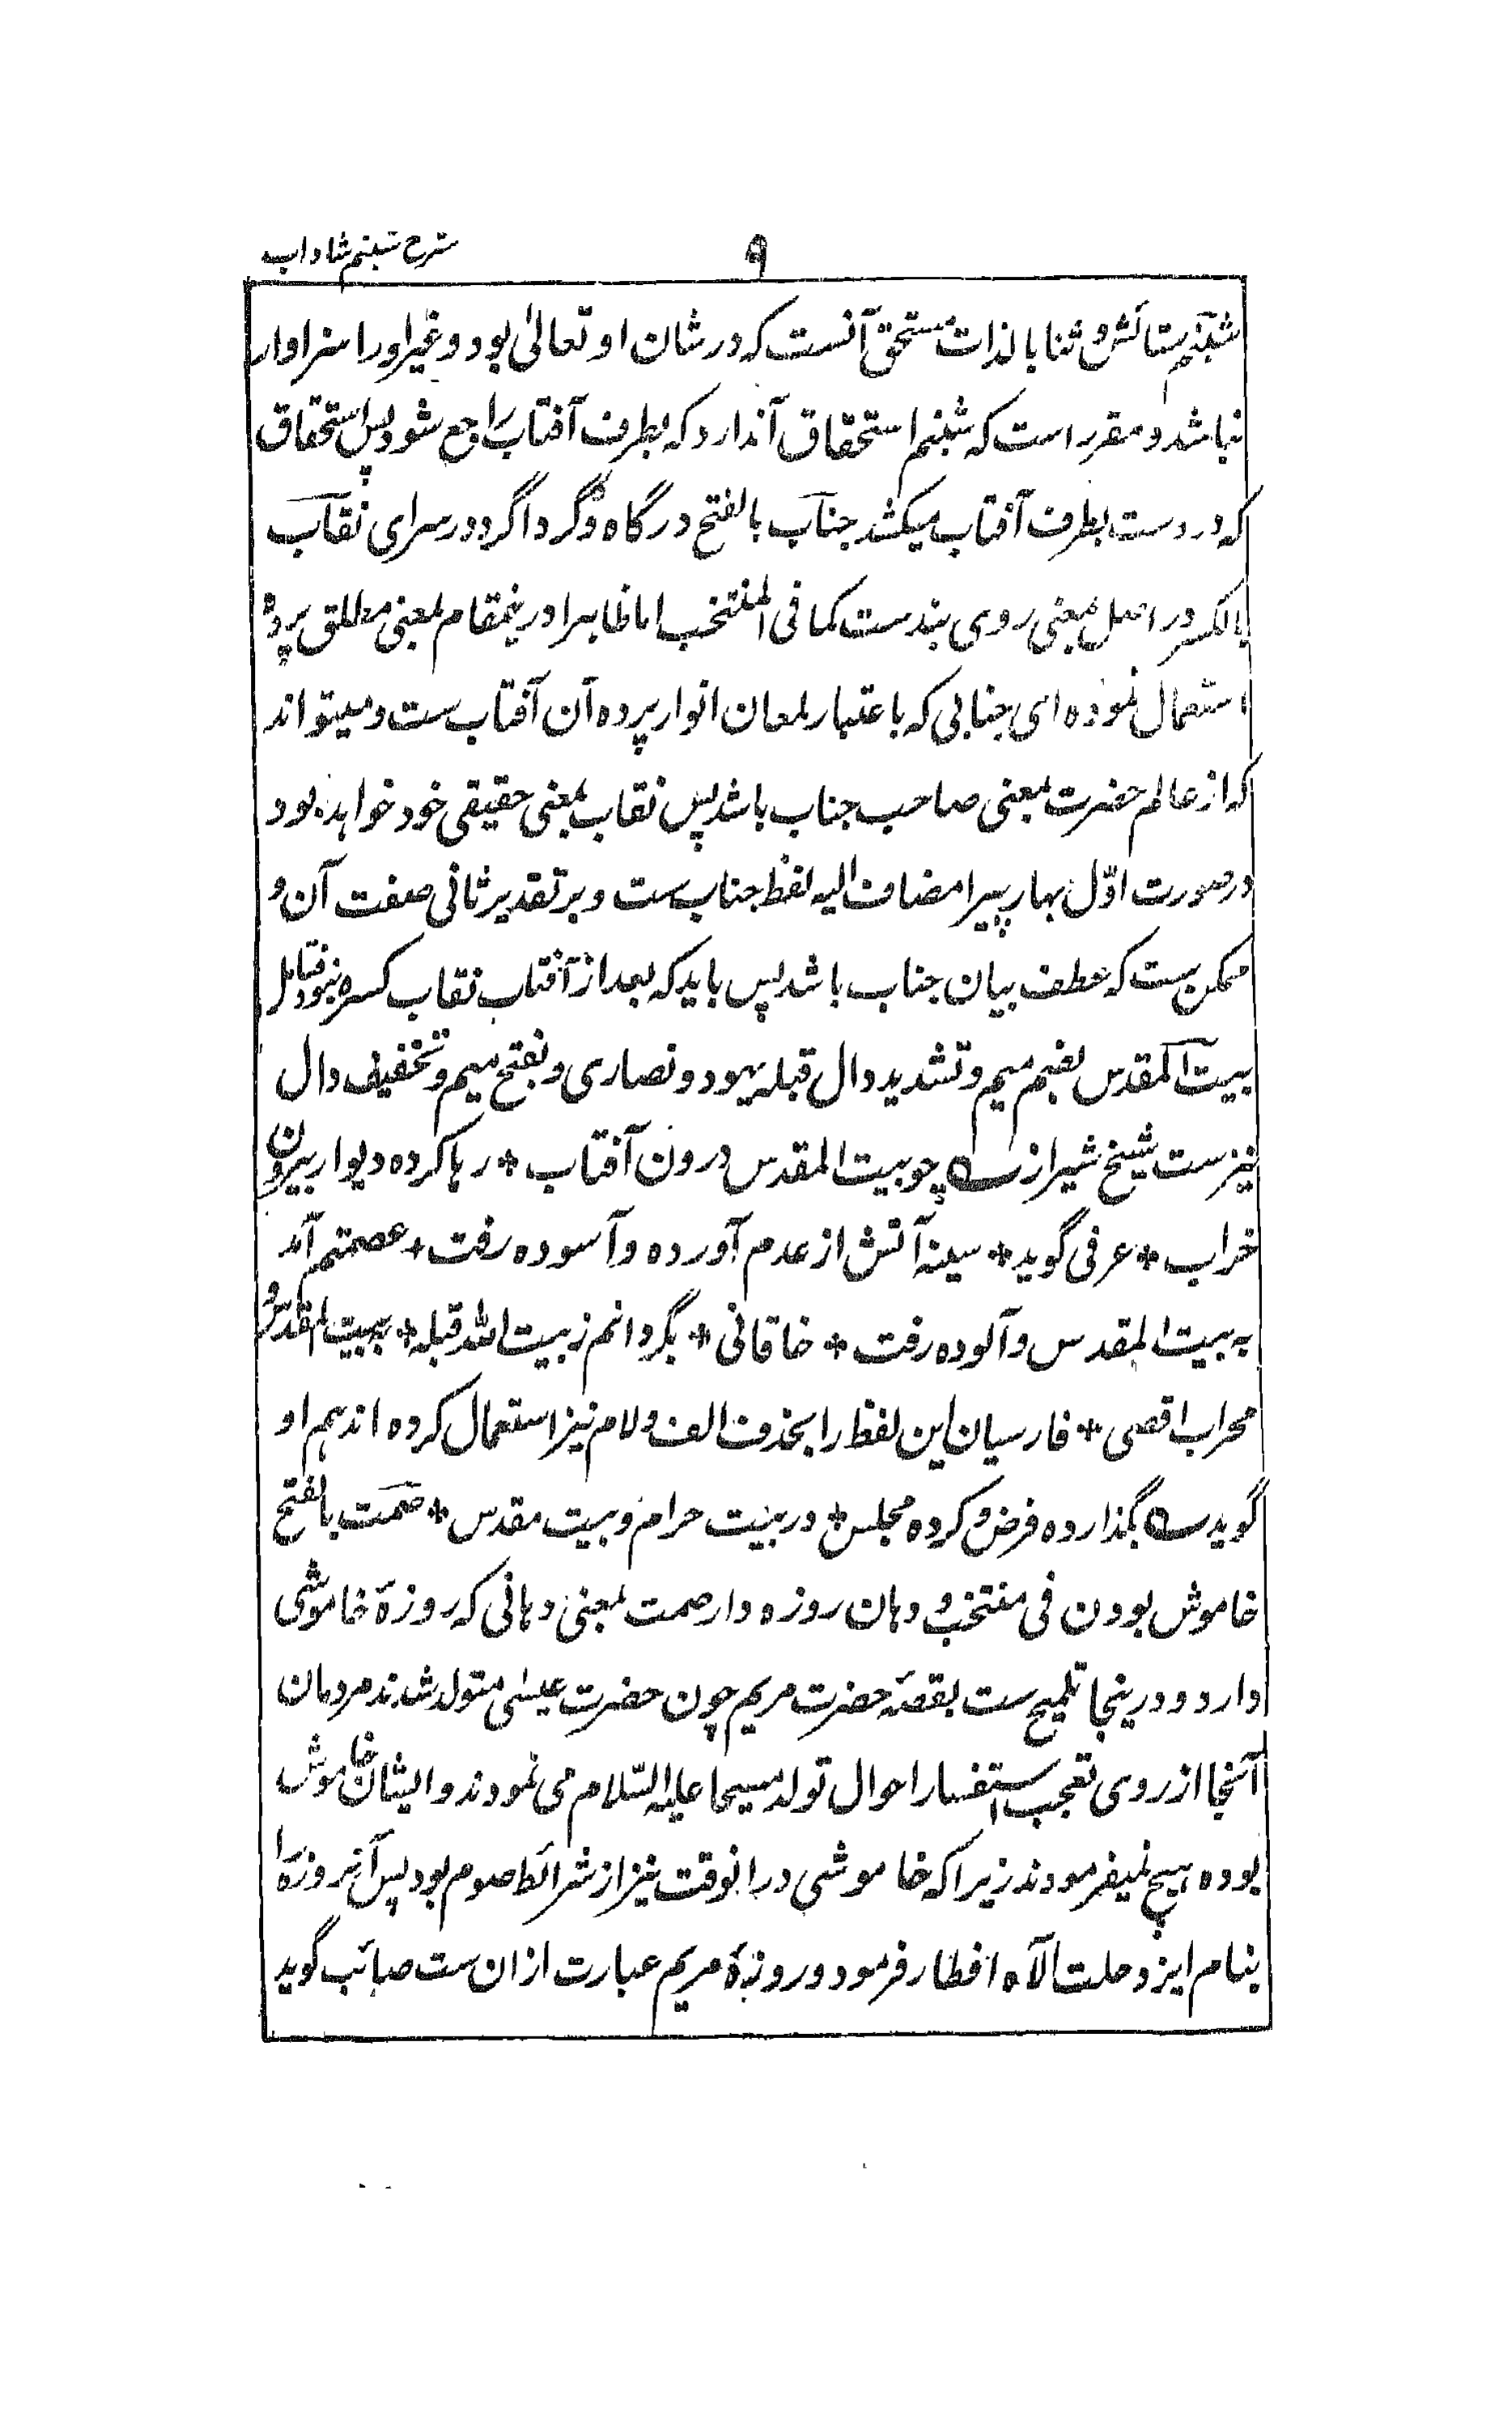 ۹
شرح شبنم شاداب
شبنم ستائش و ثنا بالذات مستحق آنست که در شان او تعالیٰ بود و غیر او را سزاوار
نباشد و مقرر است که شبنم استحقاق آندارد که بطرف آفتاب راجع شود پس استحقاق
که در دست بطرف آفتاب میکشد جناب بالفتح درگاه و گرداگرد در سرای نقاب
بالکسر در اصل بمعنی روی بندست کما فی المنتخب اما ظاهرا درینمقام بمعنی مطلق پرده
استعمال نموده ای جنابی که باعتبار لمعان انوار پرده آن آفتاب ست و میتواند
که از عالم حضرت بمعنی صاحب جناب باشد پس نقاب بمعنی حقیقی خود خواهد بود
در صورت اوّل بهار پیرا مضاف الیه لفظ جناب ست و بر تقدیر ثانی صفت آن و
ممکن ست که عطف بیان جناب باشد پس باید که بعد از آفتاب نقاب کسره نبود فتامل
بیت المقدس بضم میم و تشدید دال قبله یهود و نصاری و بفتح میم و تخفیف دال
نیز ست شیخ شیراز ے چو بیت المقدس درون آفتاب * رها کرده دیوار بیرون
خراب * عرفی گوید * سینه آتش از عدم آورده و آسوده رفت * عصمتم آمد
به بیت المقدس و آلوده رفت * خاقانی * بگردانم ز بیت الله قبله * به بیت المقدس و
محراب اقصی * فارسیان این لفظ را بحذف الف و لام نیز استعمال کرده اند هم او
گوید ے بگذارده فرض و کرده مجلس * در بیت حرام و بیت مقدس * صمت بالفتح
خاموش بودن فی منتخب و دهان روزه دار صمت بمعنی دهانی که روزهٔ خاموشی
دارد و درینجا تلمیح ست بقصّه حضرت مریم چون حضرت عیسٰی متولد شدند مردمان
آنجا از روی تعجب استفسار احوال تولد مسیحا علیه السّلام می نمودند و ایشان خاموش
بوده هیچ نمیفرمودند زیرا که خاموشی در انوقت نیز از شرائط صوم بود پس آنروزه را
بنام ایزد ملت الآه افطار فرمود و روزهٔ مریم عبارت ازان ست صائب گوید